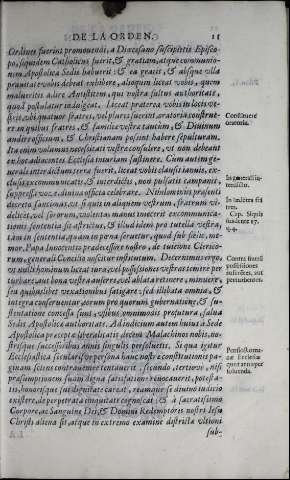 DE LA ORDEN. 15
Ordines fuerint promouendi, a Diœcesano suscipietis Episco-
po, siquidem Catholicus fuerit, & gratiam, atque communio-
nem Apostolicæ Sedis habuerit: & ea gratis, & absque vlla
prauitate vobis debeat exhibere, alioquin liceat vobis, quem
malueritis adire Antistitem, qui nostra fultus authoritate,
quod postulatur indulgeat. Liceat præterea vobis in locis ve-
stris, vbi quatuor fratres, vel plures fuerint, oratoria construe-
re in quibus fratres, & familiæ vestræ tantùm, & Diuinum
audire officium, & Christianam possint habere sepulturam.
Ita enim volumus necessitati vestræ consulere, vt non debeant
ex hoc adiacentes Ecclesiæ iniuriam sustinere. Cum autem ge-
nerale interdictum terræ fuerit, liceat vobis clausis ianuis, ex-
clusis excommunicatis, & interdictis, non pulsatis campanis,
suppressa voce, diuina officia celebrare. Nihilominus præsenti
decreto sancimus, vt si quis in aliquem vestrum, fratrum vi-
delicet, vel sororum, violentas manus iniecerit excommunica-
tionis sententia sit astrictus, &
tam in sententia, quam in pœna seruetur, quod sub felic. me-
mor. Papa Innocentio prædecessore nostro, de tuitione Clerico-
rum, generali Concilio noscitur institutum. Decernimus ergo,
vt nulli hominum liceat iura, vel possessiones vestras temere per
turbare, aut bona vestra auferre, vel ablata retinere, minuere,
seu quibuslibet vexationibus fatigare: sed illibata omnia, &
integra conseruentur, eorum pro quorum gubernatione, & su-
stentatione concessa sunt, vsibus omnimodis profutura, salua
Sedis Apostolicæ authoritate.
strisque successoribus annis singulis persoluetis. Si qua igitur
Ecclesiastica, sæcularisve persona hanc nostræ constitutionis pa-
ginam sciens contra eam venire tentauerit, secundo, tertiove, nisi
præsumptionem suam digna satisfactione reuocauerit, potesta-
tis, honorisque sui dignitate careat, reamque se diuino iudicio
existere, de perpetrata iniquitate cognoscat: & a sacratissimo
Corpore, ac Sanguine Dei, & Domini Redemptoris nostri Iesu
Christi aliena fiat, atque in extremo examine districtæ vltioni
sub-
Construere
oratoria.
In generali in-
terdicto.
Cap. Siquis
suadente 17.
q. 4.